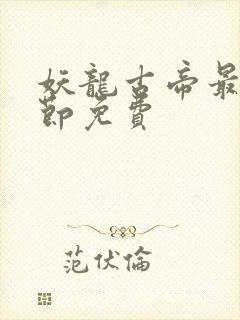 妖龍古帝最
節免費
范伏倫